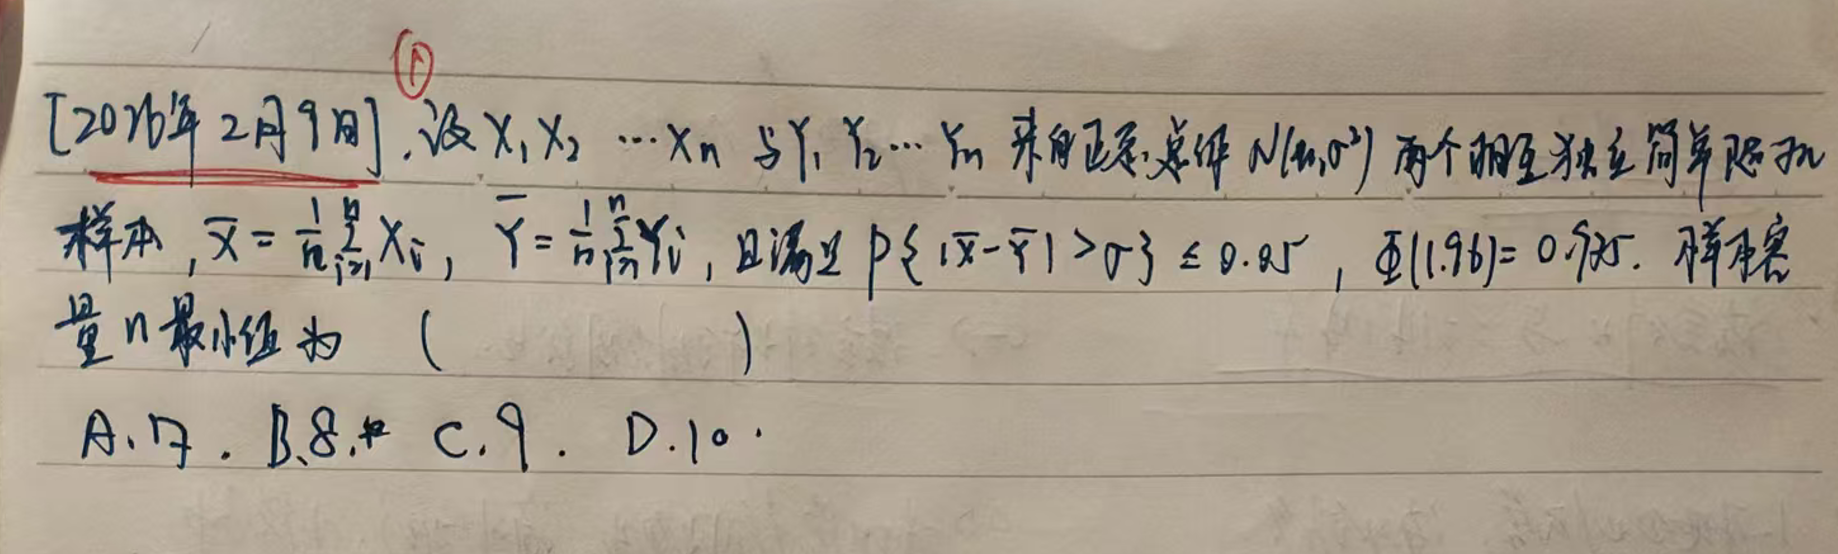 ①
[2026年2月9日].设X₁X₂…Xn与Y₁Y₂…Yn来自正态总体N(μ,σ²)两个相互独立简单随机
样本,X̄=1/n∑ᵢ₌₁ⁿXi,Ȳ=1/n∑ᵢ₌₁ⁿYi,且满足P{|X̄-Ȳ|>σ}≤0.05,Φ(1.96)=0.975.样本容
量n最小值为( )
A.7. B.8. C.9. D.10.